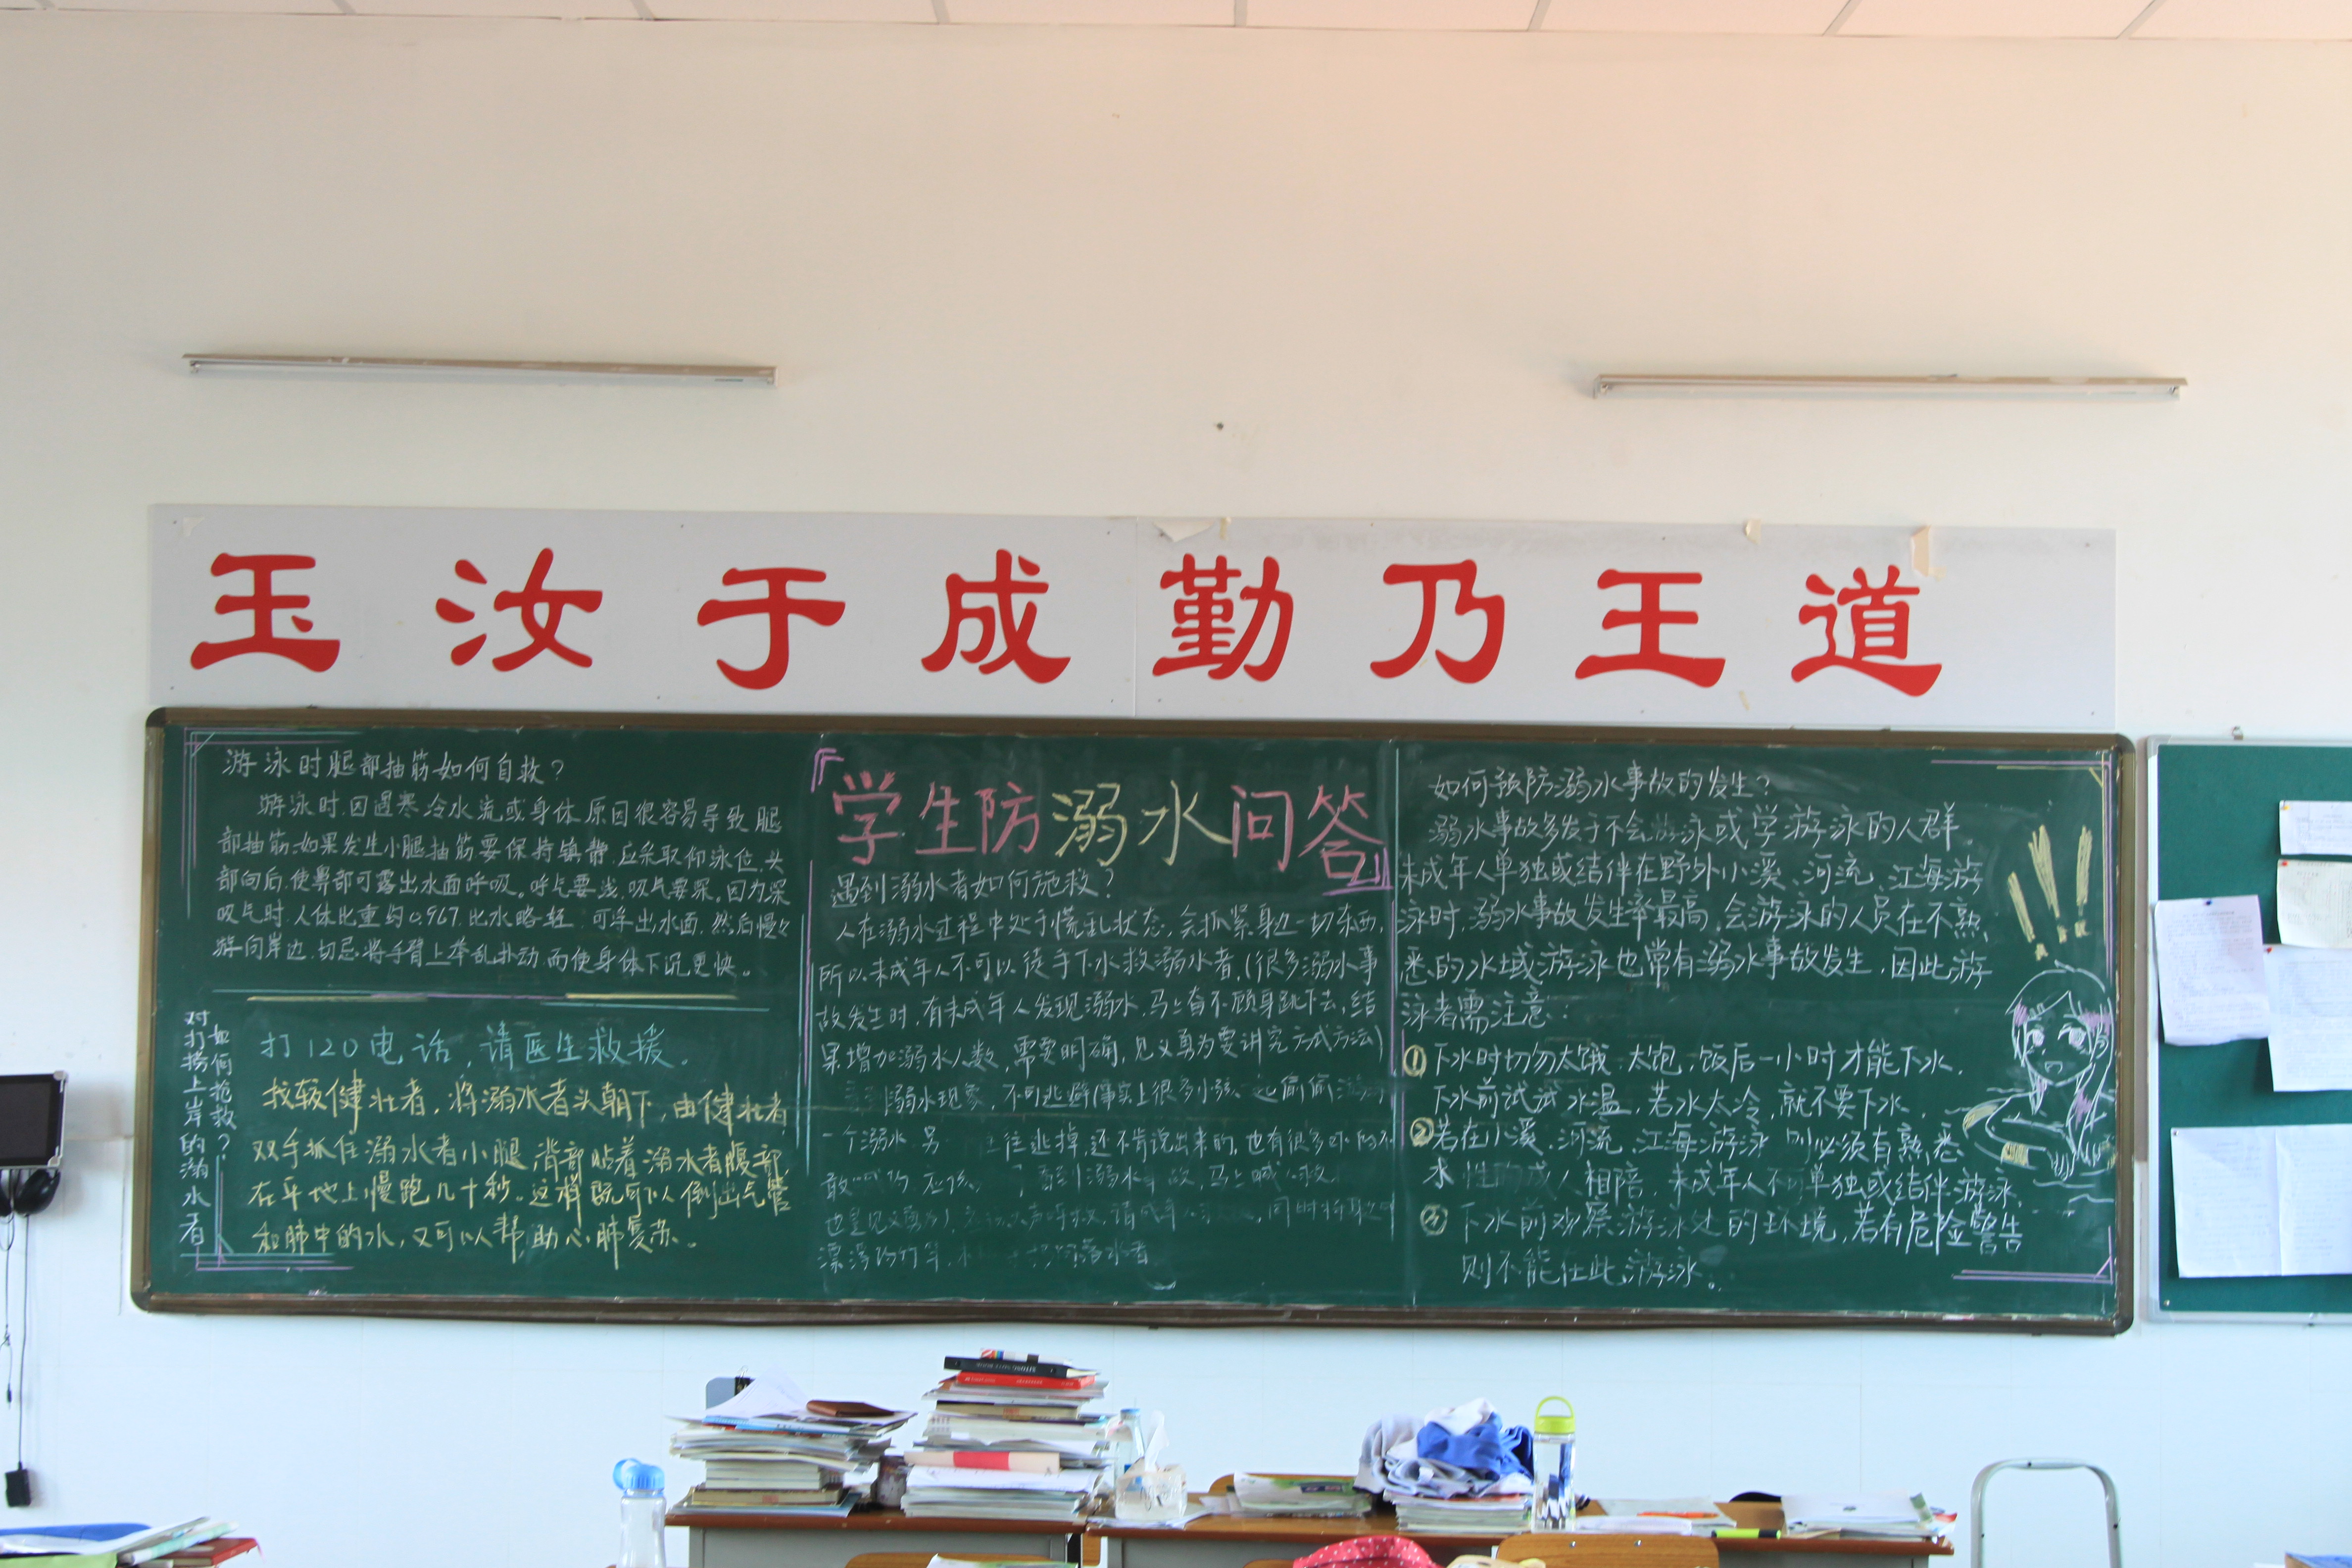 玉汝于成勤乃王道
游泳时腿部抽筋如何自救?
游泳时,因遇寒冷水流或身体原因很容易导致腿
部抽筋,如果发生小腿抽筋要保持镇静,应采取仰泳位,头
部向后,使鼻部可露出水面呼吸。呼气要浅,吸气要深。因为深
吸气时,人体比重约0.967,比水略轻,可浮出水面,然后慢々
游向岸边,切忌将手臂上举乱扑动,而使身体下沉更快。
如何抢救?
对打捞上岸的溺水者
打120电话,请医生救援。
找较健壮者,将溺水者头朝下,由健壮者
双手抓住溺水者小腿,背部贴着溺水者腹部,
在平地上慢跑几十秒。这样既可以倒出气管
和肺中的水,又可以帮助心肺复苏。
学生防溺水问答
遇到溺水者如何施救?
人在溺水过程中处于慌乱状态,会抓紧身边一切东西,
所以未成年人不可以徒手下水救溺水者,(很多溺水事
故发生时,有未成年人发现溺水,马上奋不顾身跳下去,结
果增加溺水人数,需要明确,见义勇为要讲究方式方法)
溺水现象,不可逃避(事实上很多小孩
一个溺水,另 往逃掉,还不肯说出来的,也有很多
敢 应该 看到溺水事故,马上喊
也是见义勇为 同时将
漂浮的竹竿 溺水者
如何预防溺水事故的发生?
溺水事故多发于不会游泳或学游泳的人群。
未成年人单独或结伴在野外小溪、河流、江海游
泳时,溺水事故发生率最高,会游泳的人员在不熟
悉的水域游泳也常有溺水事故发生,因此游
泳者需注意:
①下水时切勿太饿、太饱,饭后一小时才能下水,
下水前试试水温,若水太冷,就不要下水,
②若在小溪、河流、江海游泳,则必须有熟悉
水性的成人相陪,未成年人不可单独或结伴游泳,
③下水前观察游泳处的环境,若有危险警告
则不能在此游泳。